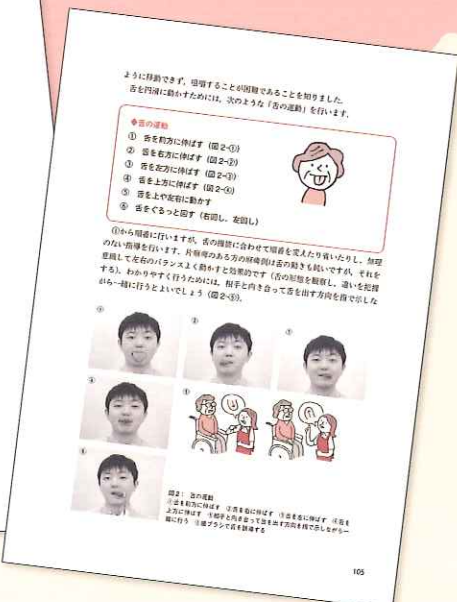 ように移動できず，咀嚼することが困難であることを知りました．
舌を円滑に動かすためには，次のような「舌の運動」を行います．
◆舌の運動
① 舌を前方に伸ばす（図2-①）
② 舌を右方に伸ばす（図2-②）
③ 舌を左方に伸ばす（図2-③）
④ 舌を上方に伸ばす（図2-④）
⑤ 舌を上や左右に動かす
⑥ 舌をぐるっと回す（右回し，左回し）
①から順番に行いますが，舌の機能に合わせて順番を変えたり省いたりし，無理
のない指導を行います．片麻痺のある方の麻痺側は舌の動きも鈍いですが，それを
意識して左右のバランスよく動かすと効果的です（舌の形態を観察し，違いを把握
する）．わかりやすく行うためには，相手と向き合って舌を出す方向を指で示しな
がら一緒に行うとよいでしょう（図2-⑤）．
① ② ③
④ ⑤
⑥
図2：舌の運動
①舌を前方に伸ばす ②舌を右に伸ばす ③舌を左に伸ばす ④舌を
上方に伸ばす ⑤相手と向き合って舌を出す方向を指で示しながら一
緒に行う ⑥歯ブラシで舌を誘導する
105